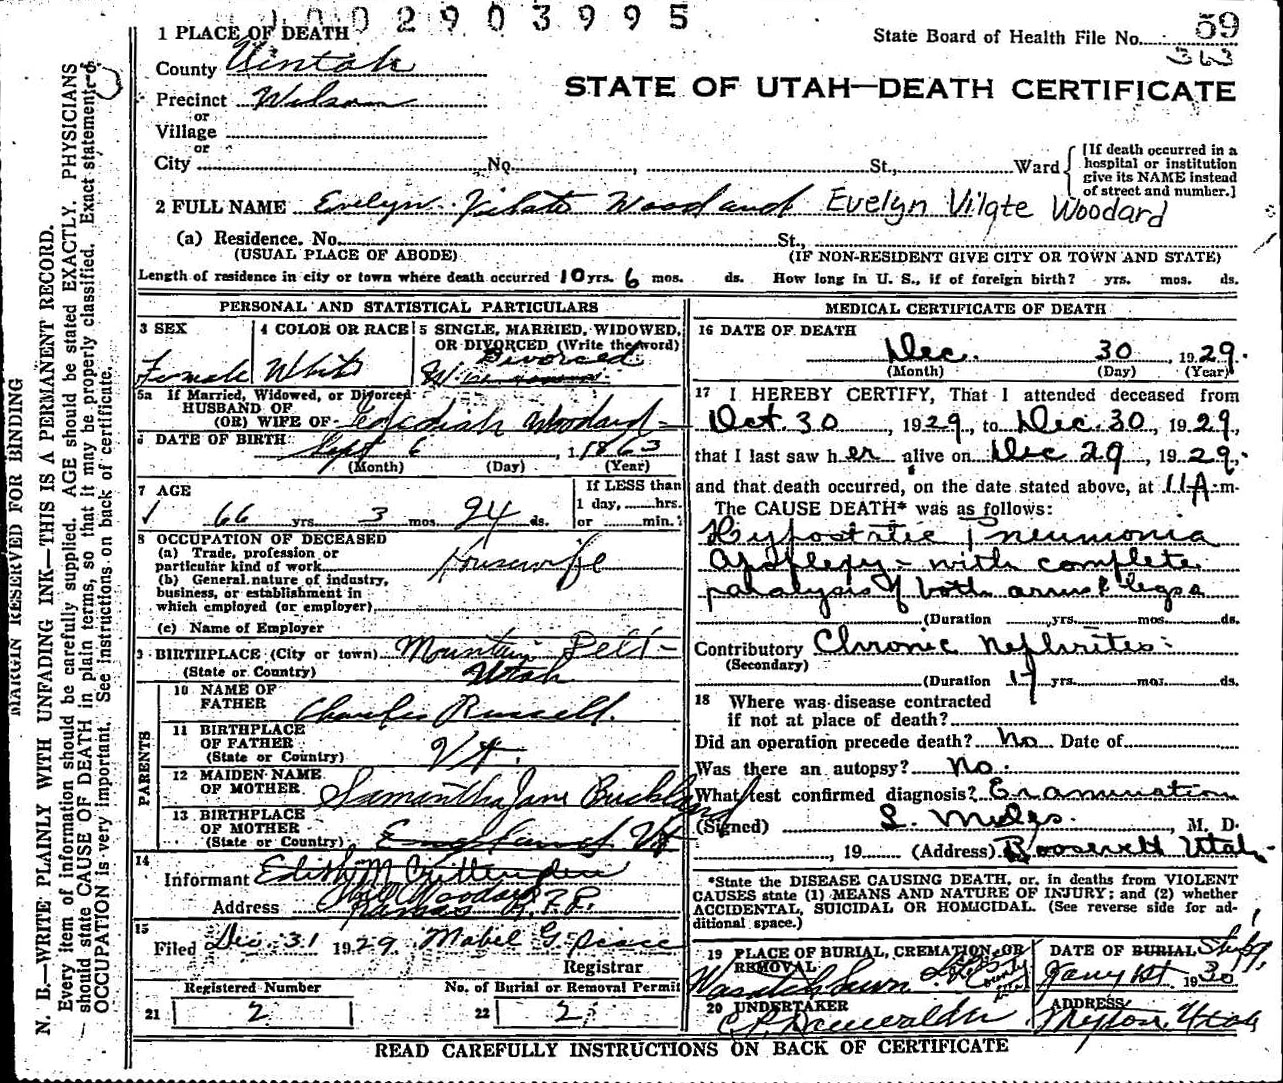 1 0 0 2 9 0 3 9 9 5
State Board of Health File No. 59
363
STATE OF UTAH—DEATH CERTIFICATE
1 PLACE OF DEATH
County Uintah
Precinct Wilson
or
Village
or
City No. St., Ward
[If death occurred in a hospital or institution give its NAME instead of street and number.]
2 FULL NAME Evelyn Vilate Woodard Evelyn Vilate Woodard
(a) Residence. No. St.,
(USUAL PLACE OF ABODE) (IF NON-RESIDENT GIVE CITY OR TOWN AND STATE)
Length of residence in city or town where death occurred 10 yrs. 6 mos. ds. How long in U. S., if of foreign birth? yrs. mos. ds.
PERSONAL AND STATISTICAL PARTICULARS
3 SEX
Female
4 COLOR OR RACE
White
5 SINGLE, MARRIED, WIDOWED,
OR DIVORCED (Write the word)
Divorced
5a If Married, Widowed, or Divorced
HUSBAND OF
(OR) WIFE OF Woodard
6 DATE OF BIRTH
Sept 6, 1863
(Month) (Day) (Year)
7 AGE
66 yrs. 3 mos. 24 ds.
If LESS than
1 day, hrs.
or min.?
8 OCCUPATION OF DECEASED
(a) Trade, profession or
particular kind of work Housewife
(b) General nature of industry,
business, or establishment in
which employed (or employer)
(c) Name of Employer
9 BIRTHPLACE (City or town) Mountain Dell
(State or Country) Utah
PARENTS
10 NAME OF
FATHER Charles Russell
11 BIRTHPLACE
OF FATHER
(State or Country) Vt.
12 MAIDEN NAME
OF MOTHER Samantha Jane Buckland
13 BIRTHPLACE
OF MOTHER
(State or Country) England Vt
14
Informant Edith M Crittenden
Address Kamas
15
Filed Dec 31 1929 Mabel G.
Registrar
Registered Number No. of Burial or Removal Permit
21 2 22 2
MEDICAL CERTIFICATE OF DEATH
16 DATE OF DEATH
Dec. 30, 1929.
(Month) (Day) (Year)
17 I HEREBY CERTIFY, That I attended deceased from
Oct. 30, 1929, to Dec. 30, 1929,
that I last saw her alive on Dec 29, 1929,
and that death occurred, on the date stated above, at 11 A.m.
The CAUSE DEATH* was as follows:
Hypostatic Pneumonia
Apoplexy - with complete
paralysis of both arms & legs
(Duration yrs. mos. ds.
Contributory Chronic Nephrites
(Secondary)
(Duration 17 yrs. mos. ds.
18 Where was disease contracted
if not at place of death?
Did an operation precede death? No Date of
Was there an autopsy? No.
What test confirmed diagnosis? Examination
(Signed) , M. D.
, 19 (Address) Roosevelt Utah
*State the DISEASE CAUSING DEATH, or, in deaths from VIOLENT
CAUSES state (1) MEANS AND NATURE OF INJURY; and (2) whether
ACCIDENTAL, SUICIDAL OR HOMICIDAL. (See reverse side for ad-
ditional space.)
19 PLACE OF BURIAL, CREMATION, OR
REMOVAL
Wasatch Lawn
County
DATE OF BURIAL
Jany 1st 1930
20 UNDERTAKER
ADDRESS
Myton, Utah
READ CAREFULLY INSTRUCTIONS ON BACK OF CERTIFICATE
MARGIN RESERVED FOR BINDING
N. B.—WRITE PLAINLY WITH UNFADING INK—THIS IS A PERMANENT RECORD.
Every item of information should be carefully supplied. AGE should be stated EXACTLY. PHYSICIANS
should state CAUSE OF DEATH in plain terms, so that it may be properly classified. Exact statement of
OCCUPATION is very important. See instructions on back of certificate.